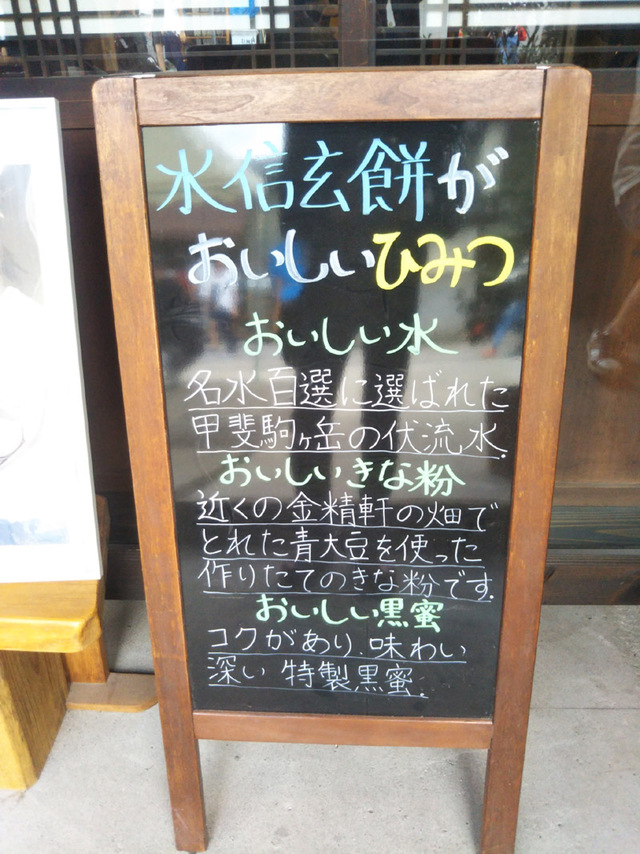 水信玄餅が
おいしいひみつ
おいしい水
名水百選に選ばれた
甲斐駒ヶ岳の伏流水.
おいしいきな粉
近くの金精軒の畑で
とれた青大豆を使った
作りたてのきな粉です.
おいしい黒蜜
コクがあり、味わい
深い 特製黒蜜.